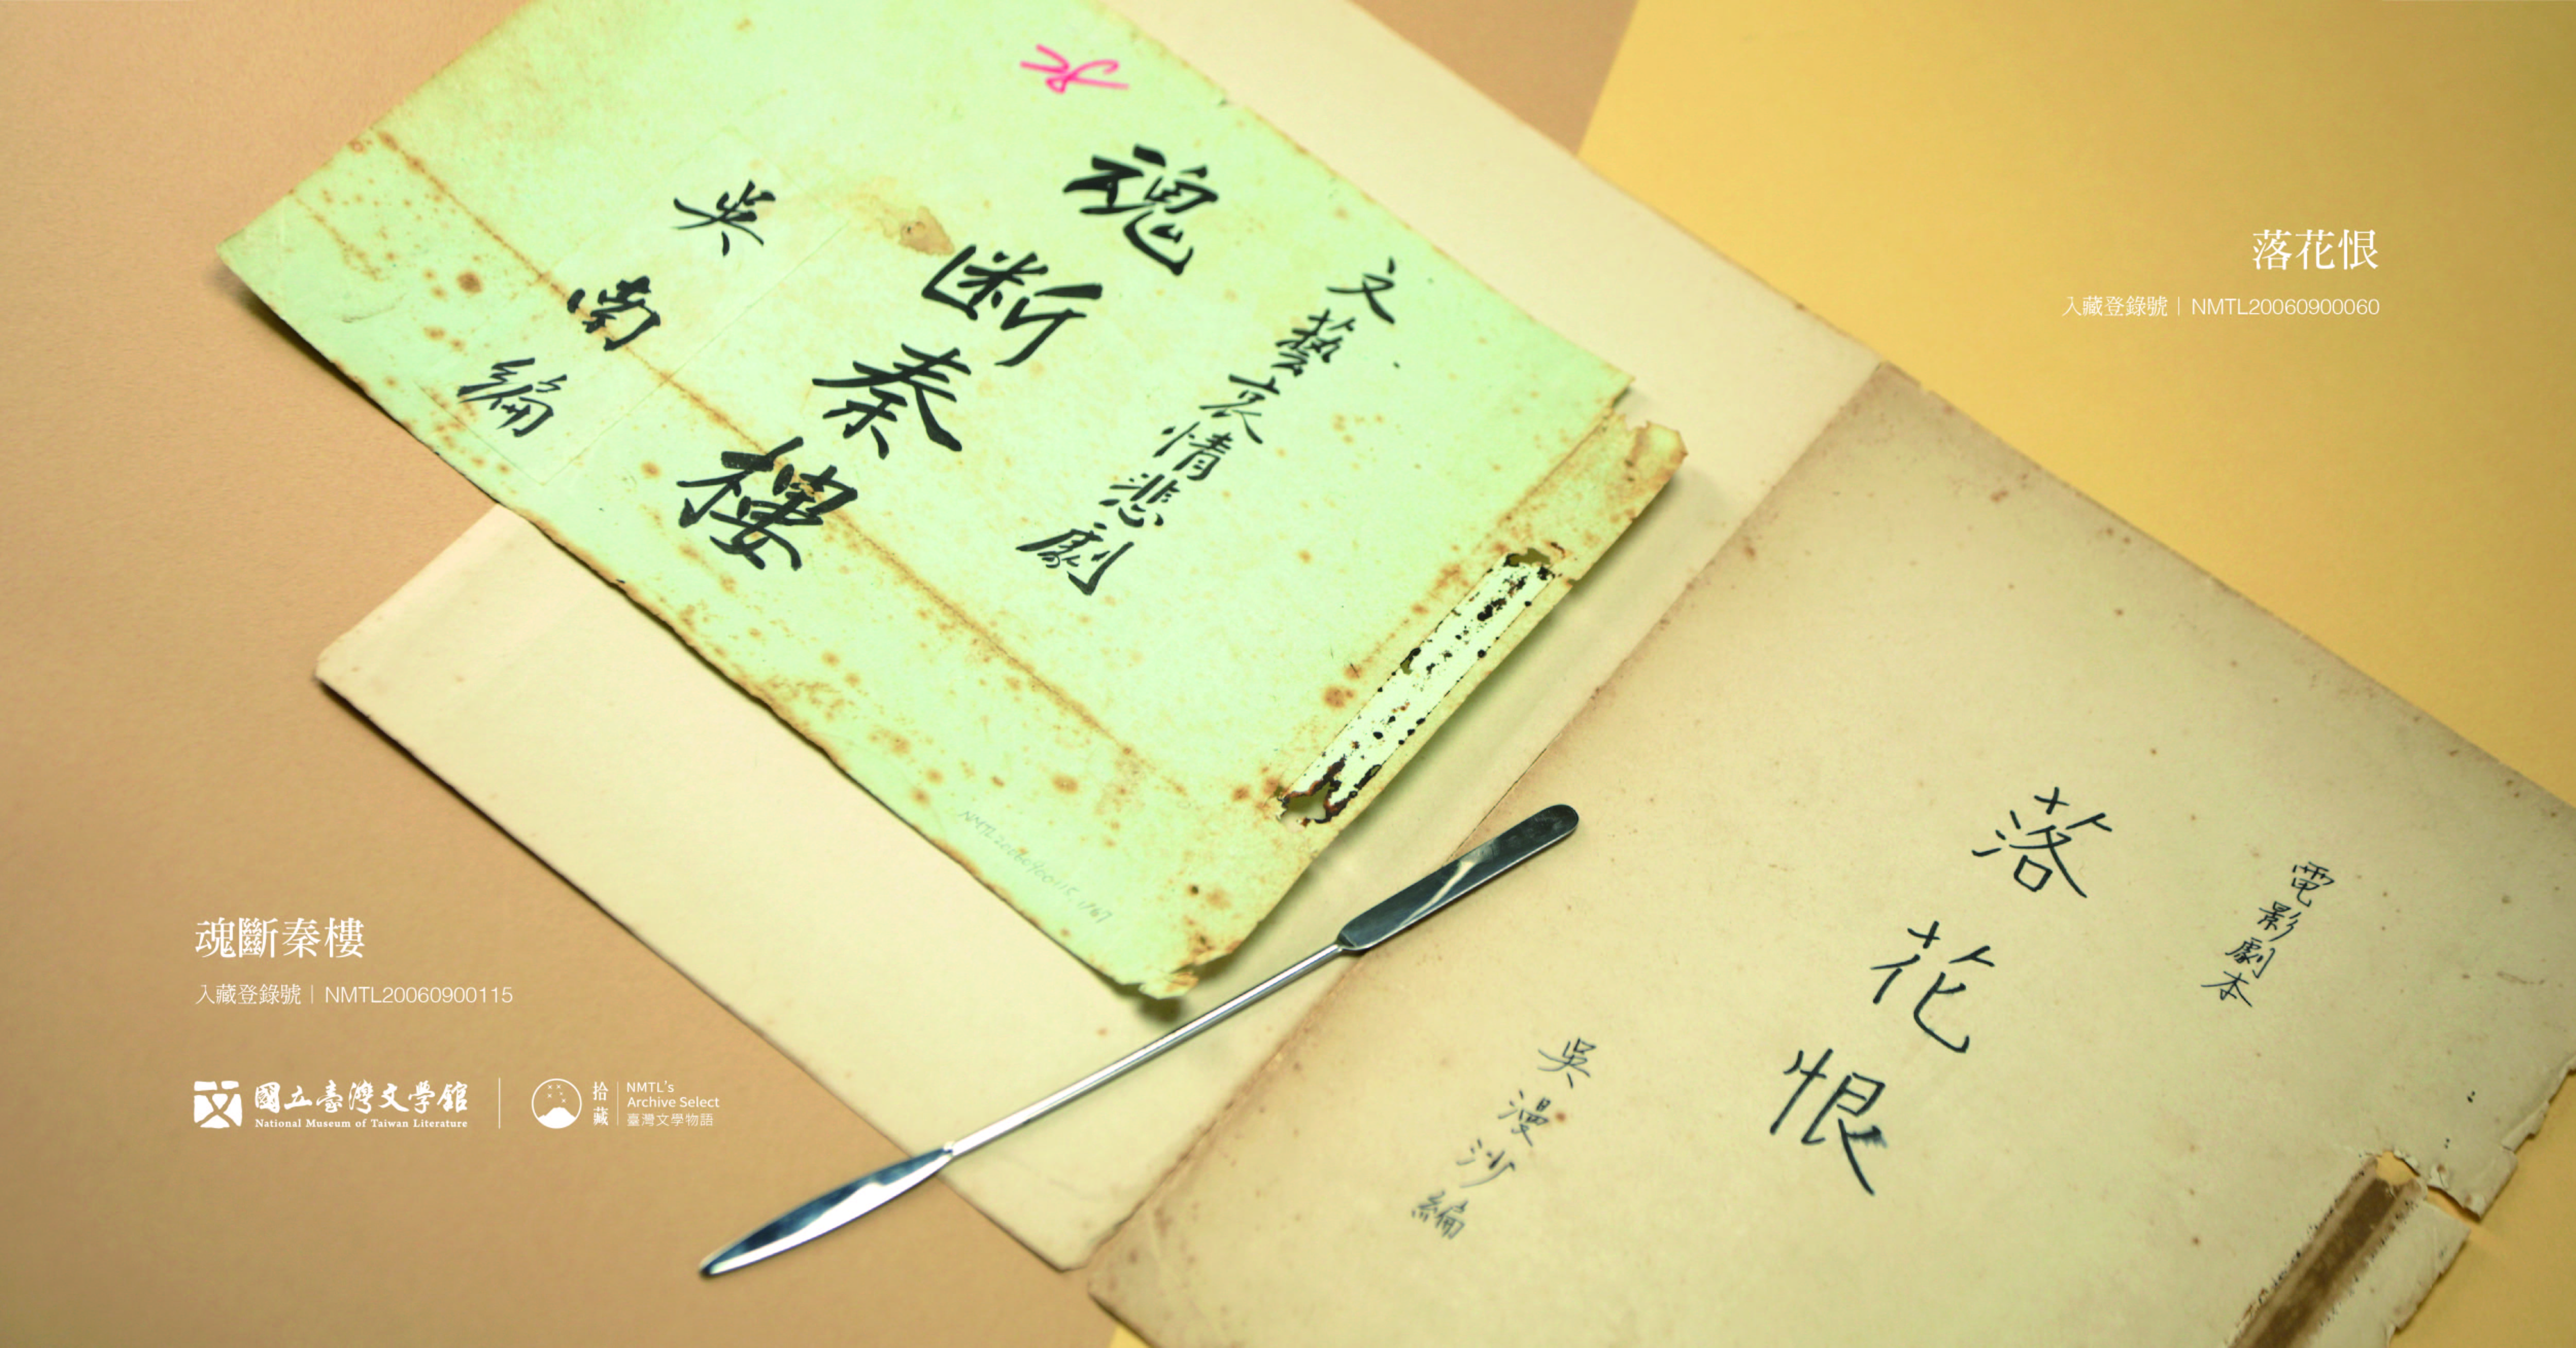 文藝哀情悲劇
魂断秦樓
吳南編
落花恨
入藏登錄號｜NMTL20060900060
電影劇本
落花恨
吳漫沙編
魂斷秦樓
入藏登錄號｜NMTL20060900115
國立臺灣文學館
National Museum of Taiwan Literature
拾藏
NMTL's
Archive Select
臺灣文學物語